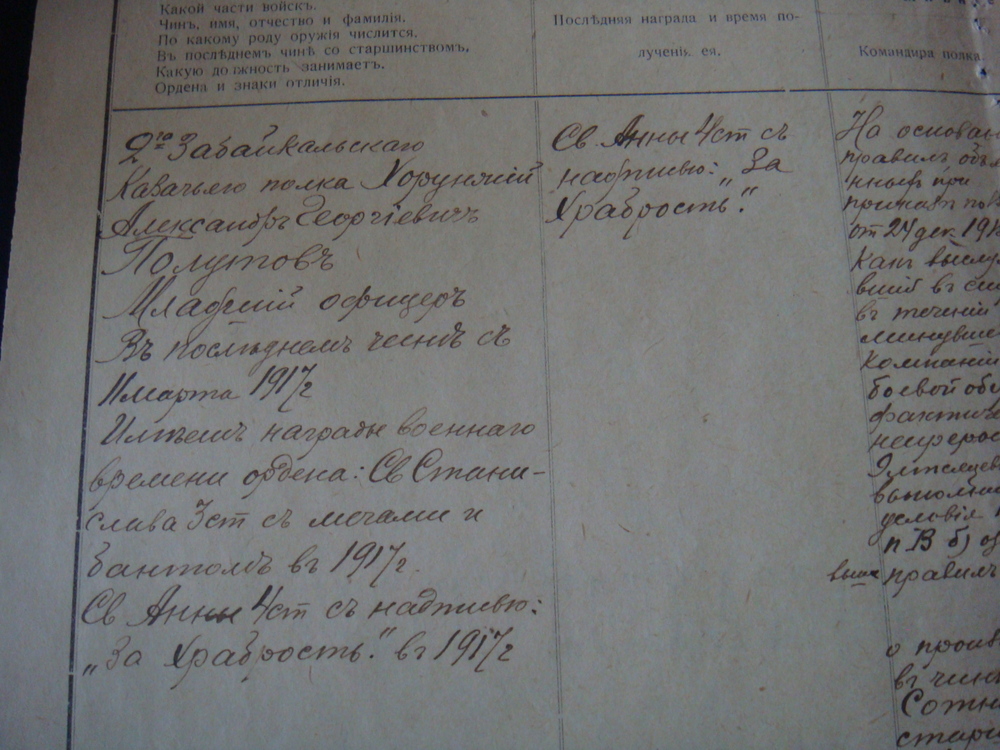 Какой части войскъ.
Чинъ, имя, отчество и фамилія.
По какому роду оружія числится.
Въ послѣднемъ чинѣ со старшинствомъ,
Какую должность занимаетъ.
Ордена и знаки отличія.
Послѣдняя награда и время по-
лученія ея.
Командира полка.
2го Забайкальскаго
Казачьяго полка Хорунжій
Александръ Георгіевичъ
Полутовъ
Младшій офицеръ
Въ послѣднемъ чинѣ съ
11 марта 1917г
Имѣетъ награды военнаго
времени ордена: Св Стани-
слава 3ст съ мечами и
бантомъ въ 1917г.
Св Анны 4ст съ надписью:
„За Храбрость." въ 1917г
Св Анны 4ст съ
надписью: „За
Храбрость."
На основан
правилъ объ
при
от 24 дек 191
Какъ выслу
вшій въ
въ теченіи
минувше
Компаніи
боевой обс
фактиче
непреров
6 мѣсяцев
выполни
условія
п В б) оз
выше правилъ
о произв
въ чин
Сотн
стар